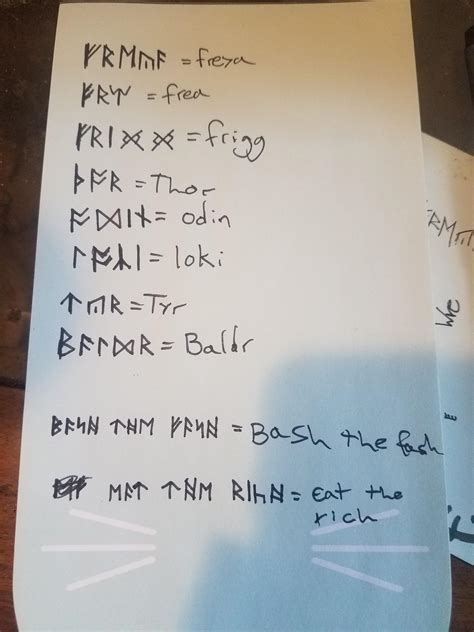 ᚠᚱᛖᚣᚪ = freya
ᚠᚱᛠ = frea
ᚠᚱᛁᚸᚸ = frigg
ᚦᚩᚱ = Thor
ᚩᛞᛁᚾ = odin
ᛚᚩᛣᛁ = loki
ᛏᚣᚱ = Tyr
ᛒᚪᛚᛞᚱ = Baldr
ᛒᚪᛋᚻ ᛏᚻᛖ ᚠᚪᛋᚻ = Bash the fash
ᛖᚪᛏ ᛏᚻᛖ ᚱᛁᚳᚻ = Eat the
rich